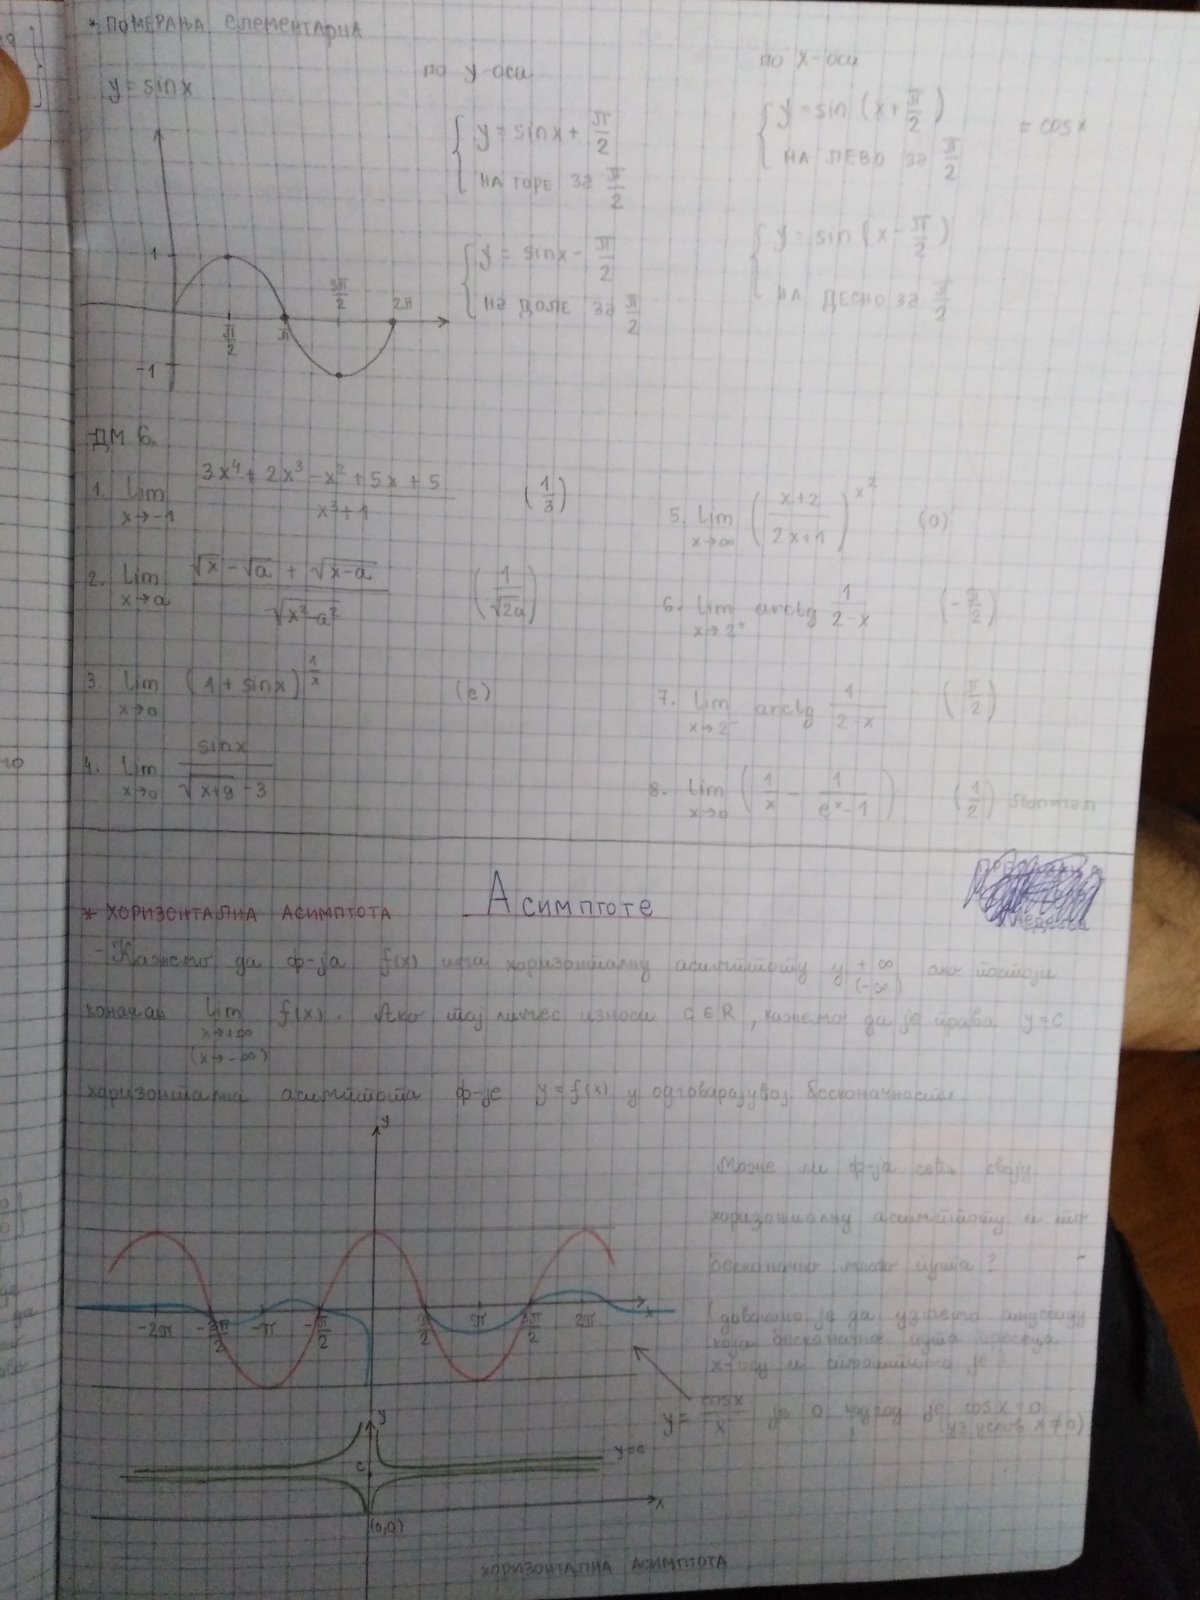 * ПОМЕРАЊА ЕЛЕМЕНТАРНА
y = sin x
по y-оси
y = sin x + π/2
НА ГОРЕ ЗА π/2
y = sin x - π/2
НА ДОЛЕ ЗА π/2
по x-оси
y = sin (x + π/2) = cos x
НА ЛЕВО ЗА π/2
y = sin (x - π/2)
НА ДЕСНО ЗА π/2
1
-1
π/2
π
3π/2
2π
ДМ 6.
1. lim x→-1 (3x⁴ + 2x³ - x² + 5x + 5)/(x³+1) (1/3)
2. lim x→a (√x - √a + √(x-a))/√(x²-a²) (1/√2a)
3. lim x→0 (1 + sin x)^(1/x) (e)
4. lim x→0 sin x/(√(x+9) - 3)
5. lim x→∞ ((x+2)/(2x+1))^(x²) (0)
6. lim x→2⁺ arctg 1/(2-x) (-π/2)
7. lim x→2⁻ arctg 1/(2-x) (π/2)
8. lim x→0 (1/x - 1/(eˣ-1)) (1/2) Лопитал
Асимптоте
* ХОРИЗОНТАЛНА АСИМПТОТА
- Кажемо да ф-ја f(x) има хоризонталну асимптоту у +∞ (-∞) ако постоји
коначан lim x→+∞ (x→-∞) f(x). Ако тај лимес износи c ∈ R, кажемо да је права y=c
хоризонтална асимптота ф-је y = f(x) у одговарајућој бесконачности.
y
x
-2π
-3π/2
-π
-π/2
π/2
π
3π/2
2π
Може ли ф-ја сећи своју
хоризонталну асимптоту и то
бесконачно много пута?
(довољно је да узмемо
која бесконачно пута
x-осу и
y = cos x/x је 0 кад год је cos x = 0
(уз услов x≠0)
y
y=c
c
x
(0,0)
ХОРИЗОНТАЛНА АСИМПТОТА